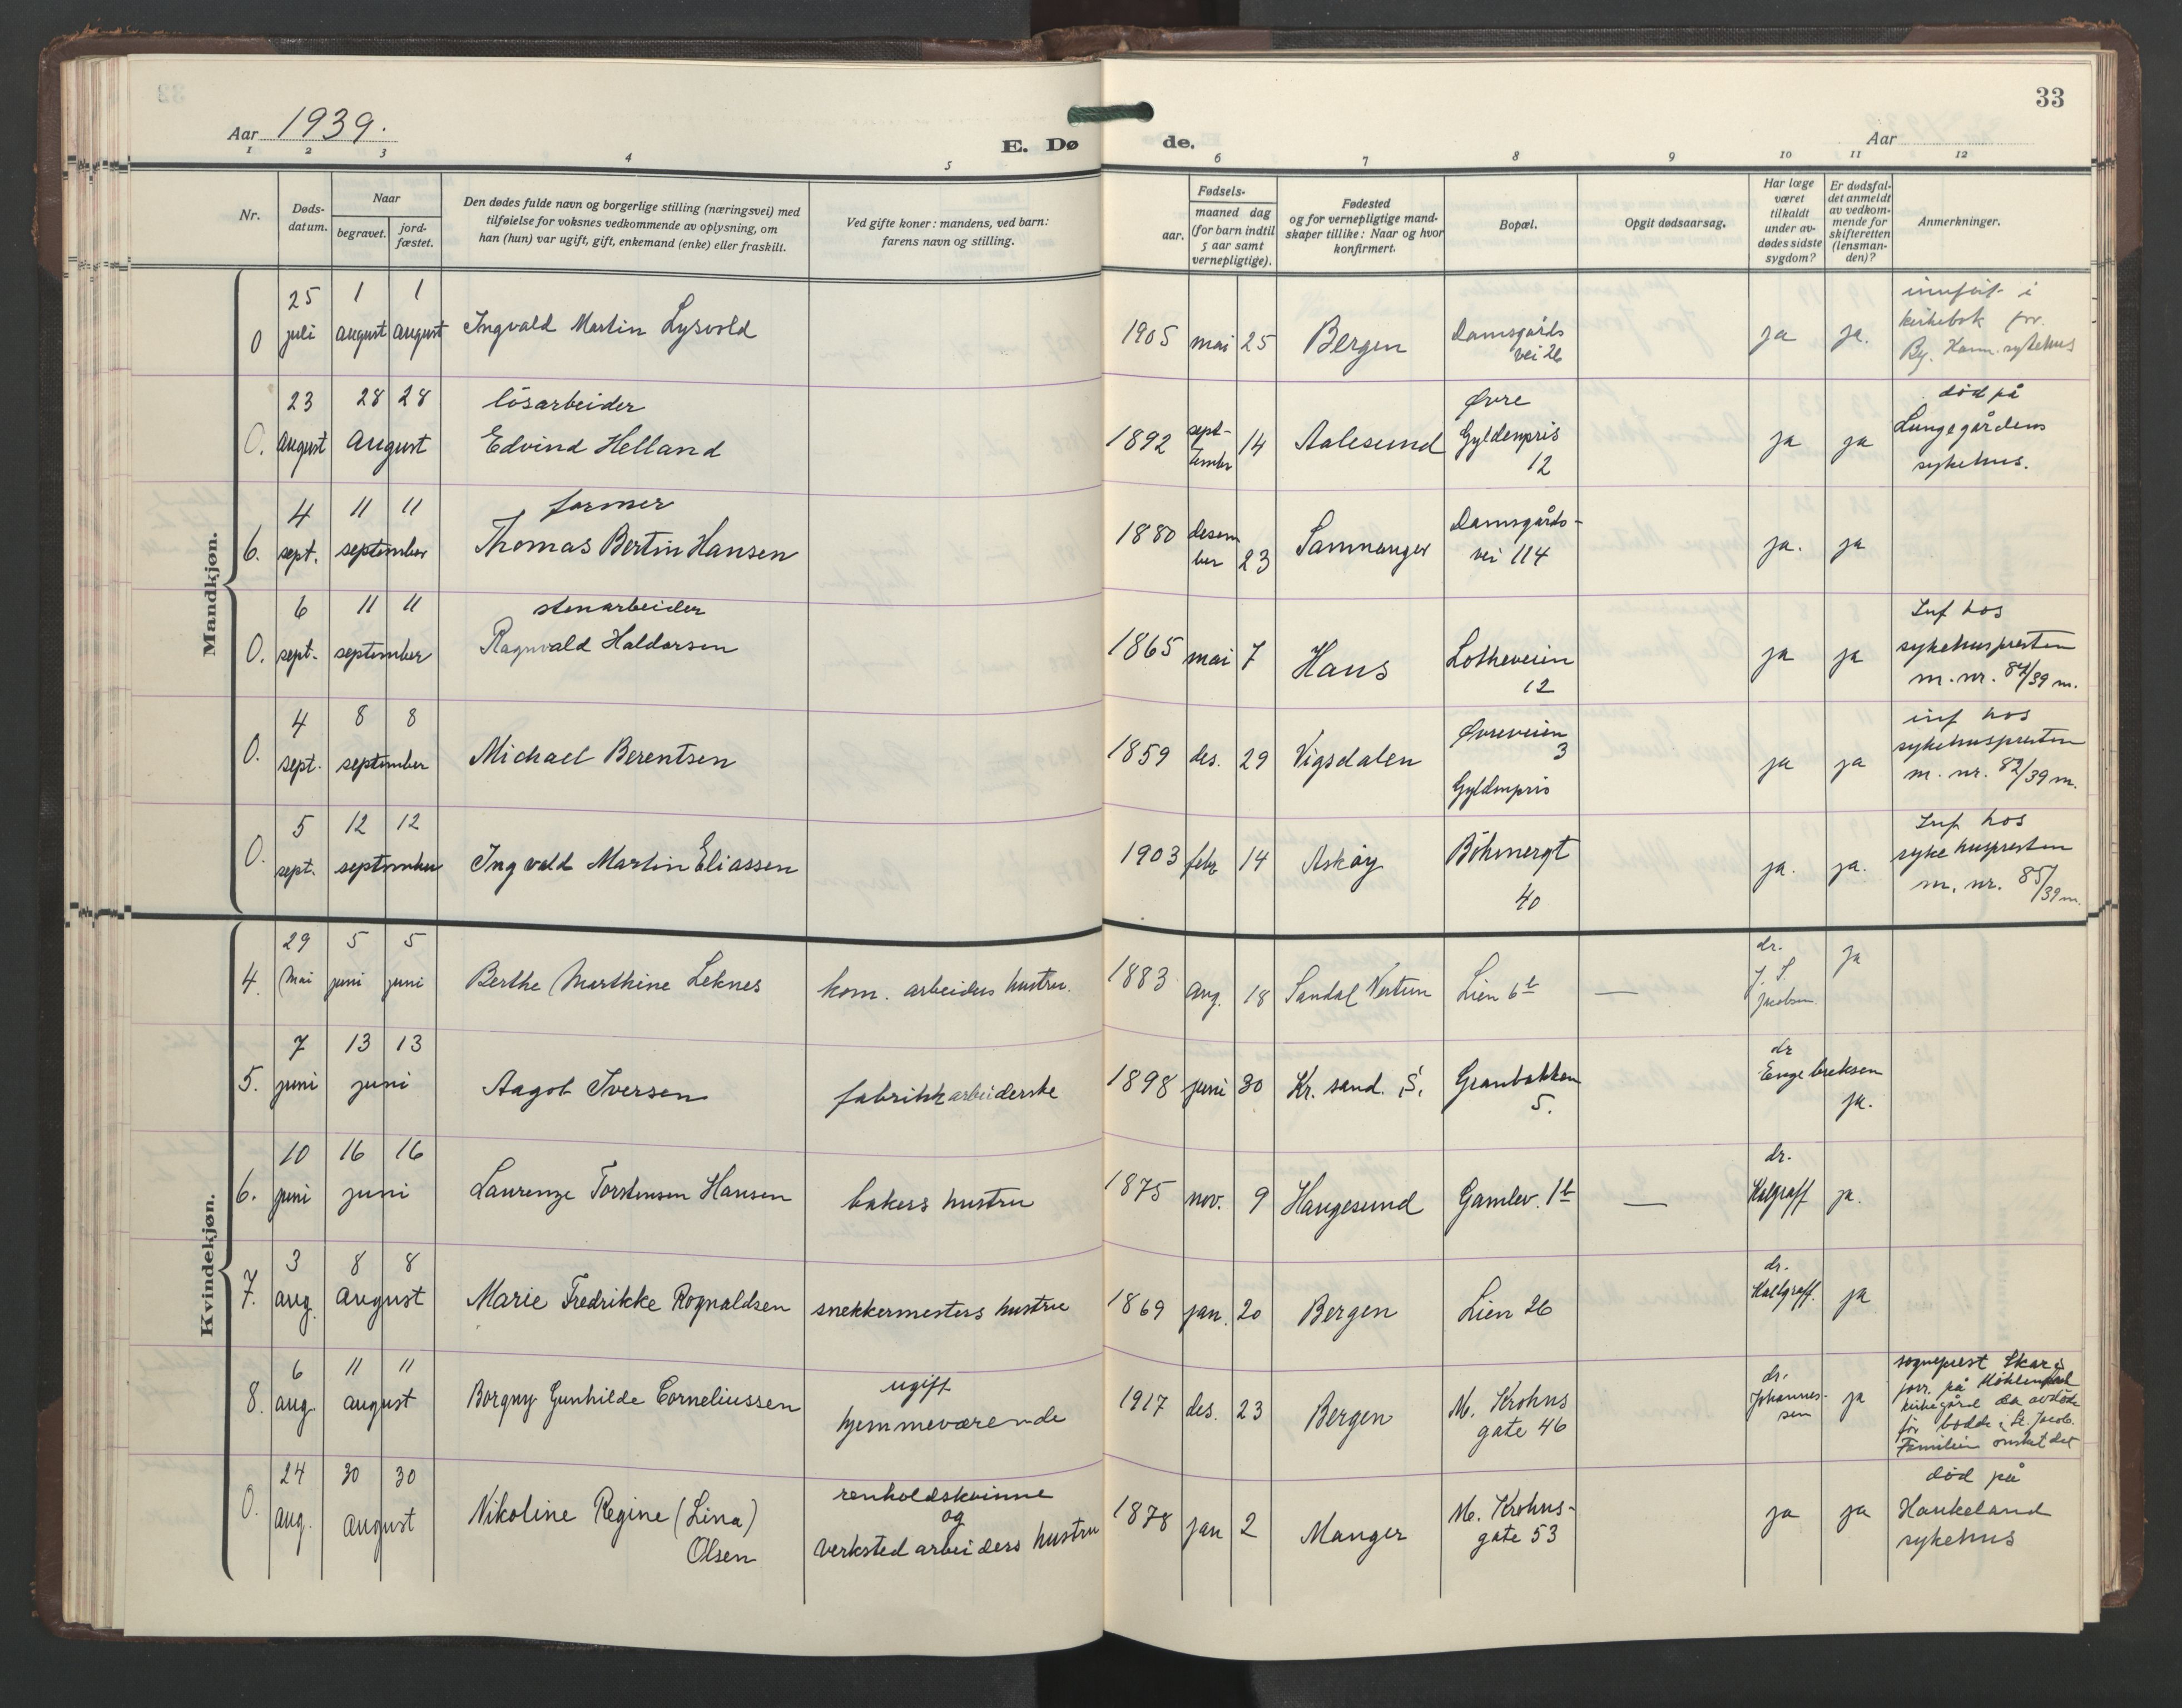 33
Aar 1939.
E. Døde.
Aar
1 2 3 4 5 6 7 8 9 10 11 12
Nr.
Døds-
datum.
Naar
begravet.
jord-
fæstet.
Den dødes fulde navn og borgerlige stilling (næringsvei) med
tilføielse for voksnes vedkommende av oplysning, om
han (hun) var ugift, gift, enkemand (enke) eller fraskilt.
Ved gifte koner: mandens, ved barn:
farens navn og stilling.
Fødsels-
aar.
maaned dag
(for barn indtil
5 aar samt
vernepligtige).
Fødested
og for vernepligtige mand-
skaper tillike: Naar og hvor
konfirmert.
Bopæl.
Opgit dødsaarsag.
Har læge
været
tilkaldt
under av-
dødes sidste
sygdom?
Er dødsfal-
det anmeldt
av vedkom-
mende for
skifteretten
(lensman-
den)?
Anmerkninger.
Mandkjøn.
0 25 juli 1 august 1 august Ingvald Martin Lysvold 1905 mai 25 Bergen Damsgårds
vei 26 ja ja. innført i
kirkebok for
Bg. Kom. sykehus
0. 23 august 28 28 august løsarbeider
Edvind Helland 1892 sept-
tember 14 Aalesund Øvre
Gyldenpris
12 ja ja død på
Lungegårdens
sykehus.
6. 4 sept. 11 11 september former
Thomas Bertin Hansen 1880 desem
ber 23 Samnanger Damsgårds-
vei 114 ja. ja
0. 6 sept. 11 11 september stenarbeider
Ragnvald Haldorsen 1865 mai 7 Haus Lotheveien
12 ja ja Inf hos
sykehuspresten
m. nr. 84/39 m.
0. 4 sept. 8 8 september Michael Berentsen 1859 des. 29 Vigsdalen Øvreveien
3
Gyldenpris ja ja inf hos
sykehuspresten
m. nr. 82/39 m.
0. 5 sept. 12 12 september Ingvald Martin Eliassen 1903 febr 14 Askøy Böhmergt
40 ja. ja. Inf hos
sykehuspresten
m. nr. 85/39 m.
Kvindekjøn.
4. 29 Mai 5 juni 5 juni Berthe Marthine Leknes kom. arbeiders hustru. 1883 aug. 18 Sandal Lien 6b — dr.
J. S.
Jacobsen ja
5. 7 juni 13 13 juni Aagot Iversen fabrikkarbeiderske 1898 juni 30 Kr. sand. S. Granbakken
5. dr
Engebretsen
ja.
6. 10 juni 16 16 juni Laurenze Torstensen Hansen bakers hustru 1875 nov. 9 Haugesund Gamlev. 1b — dr.
Kalgraff ja.
7. 3 aug. 8 8 august Marie Fredrikke Rognaldsen snekkermesters hustru 1869 jan. 20 Bergen Lien 26 dr.
Kallgraff. ja
8. 6 aug. 11 11 august Borgny Gunhilde Corneliussen ugift
hjemmeværende 1917 des. 23 Bergen M. Krohns
gate 46 dr.
Johannes-
sen ja sogneprest Skar
forr. på Møhlenpris
kirkegård da avdøde
før bodde i St. Jacob.
Familien ønsket det
0. 24 aug. 30 30 august Nikoline Regine (Lina)
Olsen renholdskvinne
og
verkstedarbeiders hustru 1878 jan 2 Manger M. Krohns-
gate 53 ja ja død på
Haukeland
sykehus